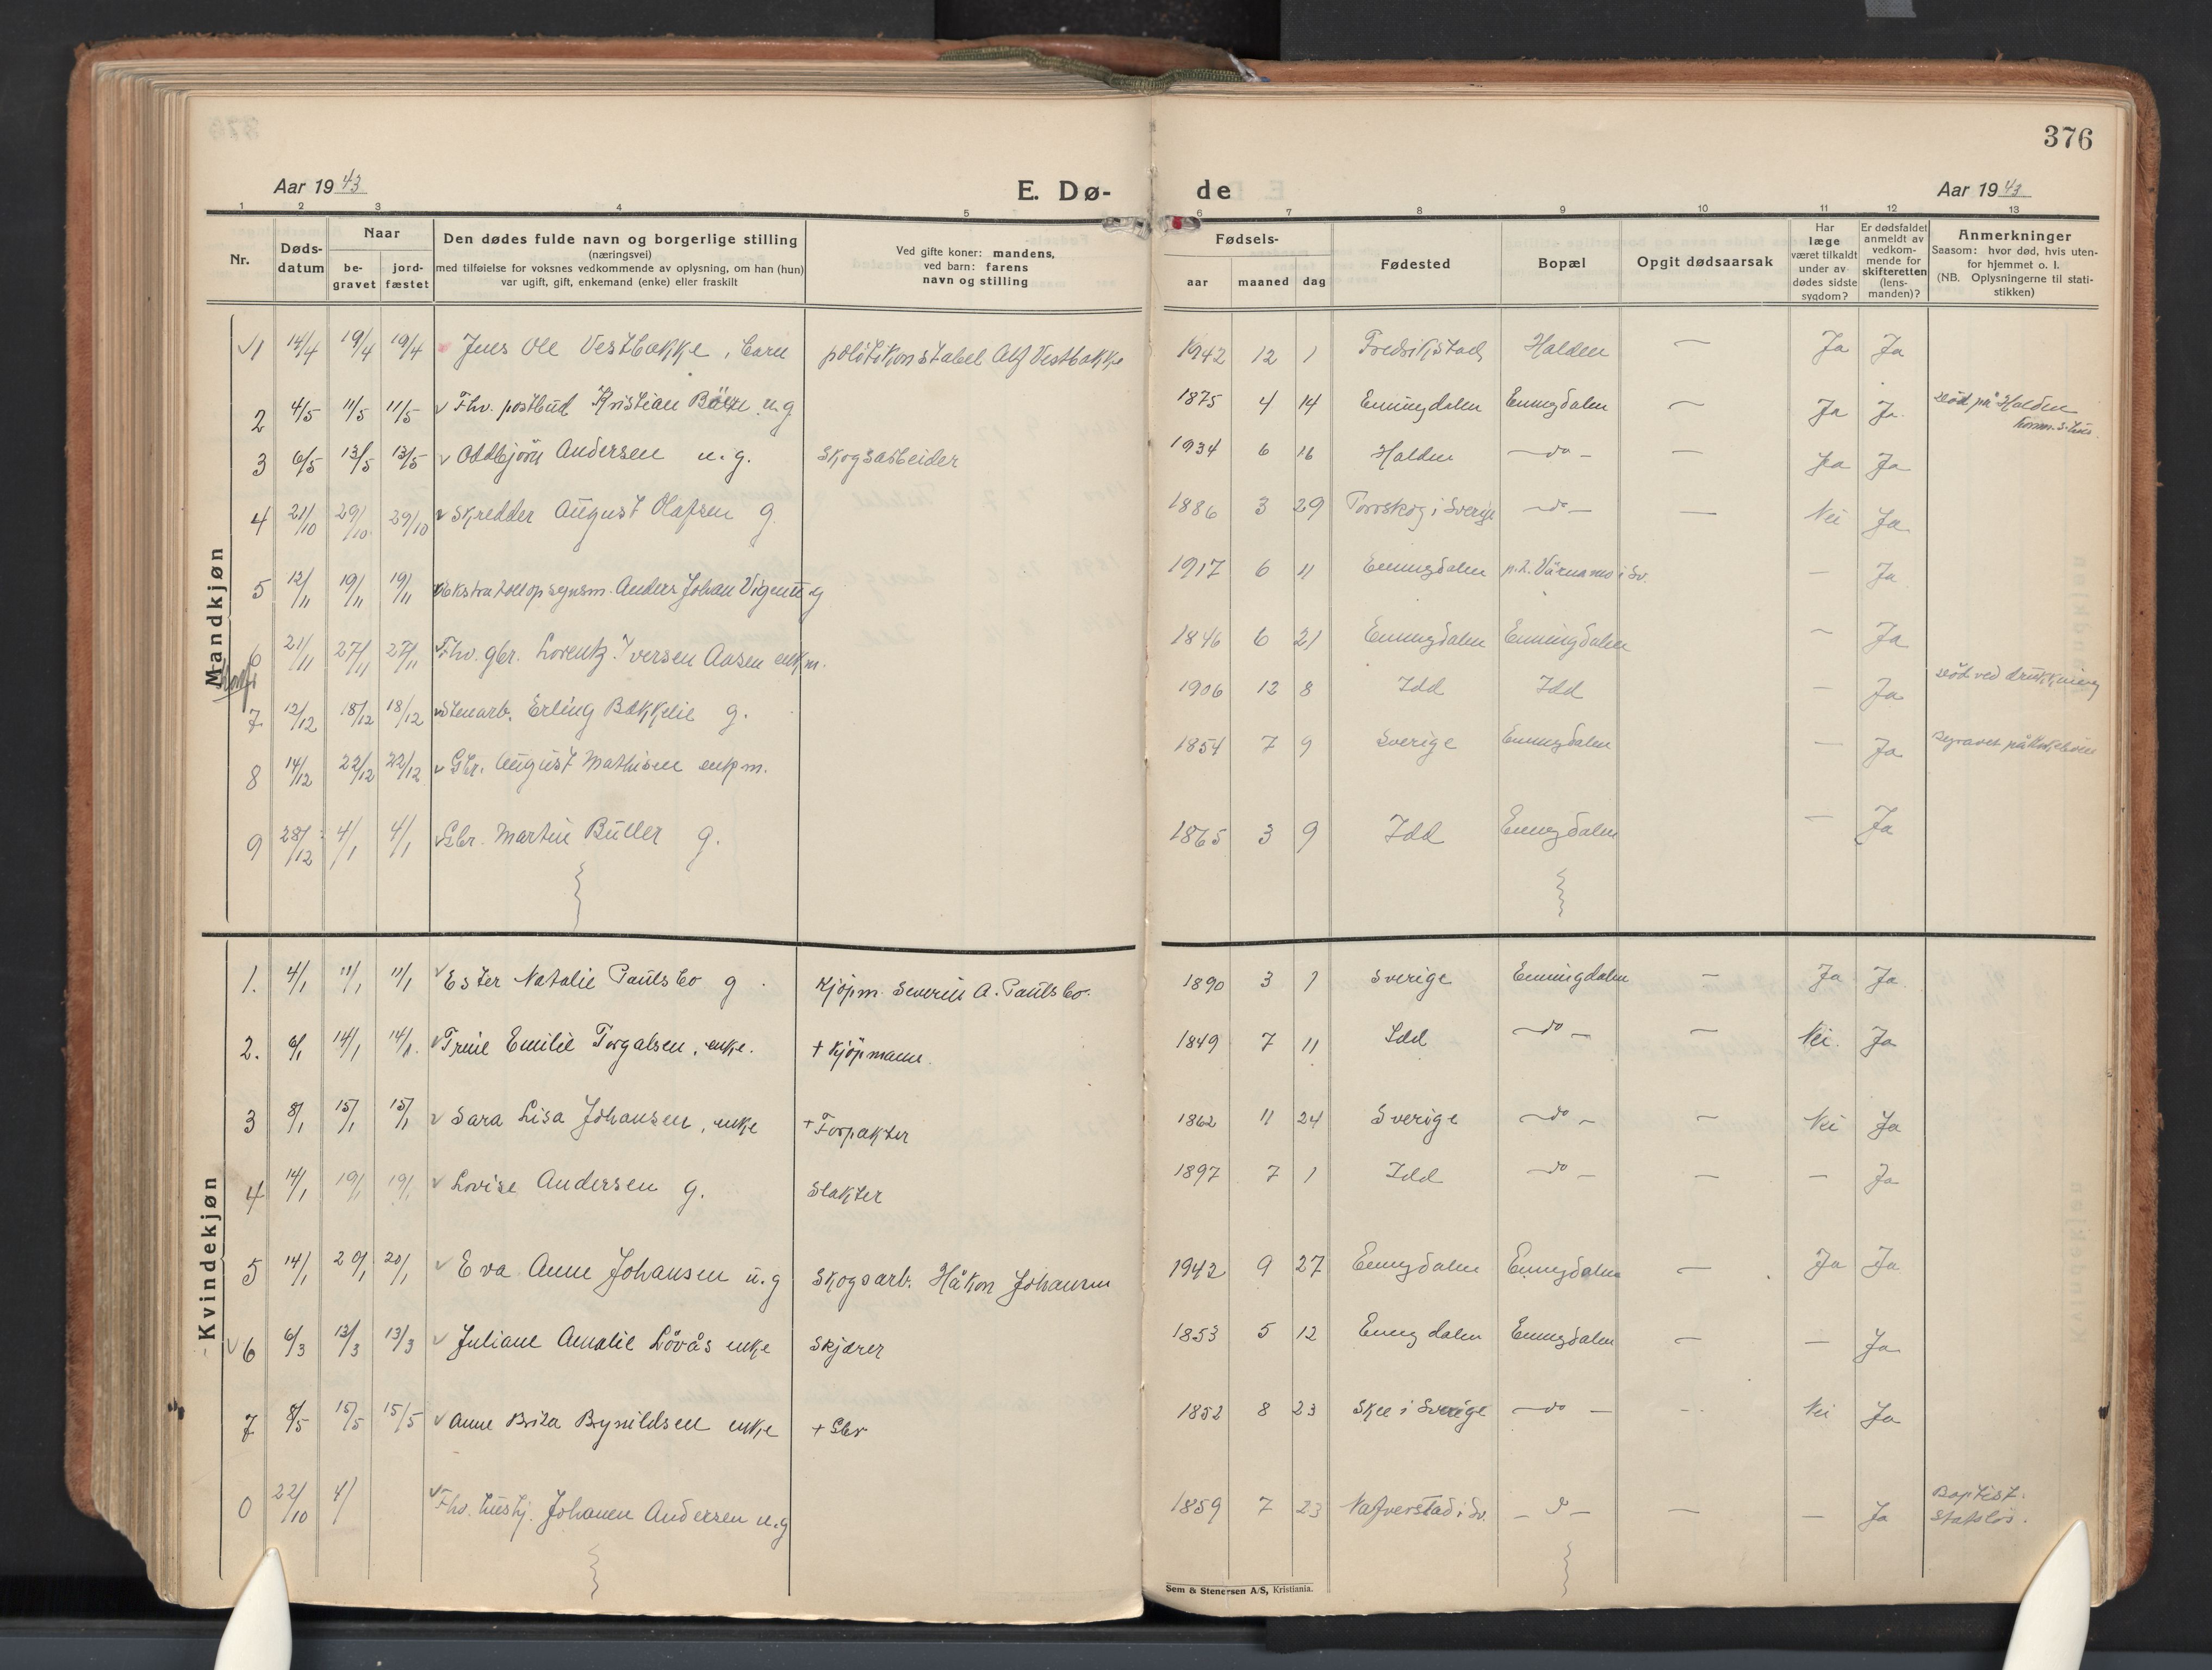 376
Aar 1943
E. Dø-
de
Aar 1943
1 2 3 4 5 6 7 8 9 10 11 12 13
Nr.
Døds-
datum
Naar
be-
gravet
jord-
fæstet
Den dødes fulde navn og borgerlige stilling
(næringsvei)
med tilføielse for voksnes vedkommende av oplysning, om han (hun)
var ugift, gift, enkemand (enke) eller fraskilt
Ved gifte koner: mandens,
ved barn: farens
navn og stilling
Fødsels-
aar maaned dag
Fødested
Bopæl
Opgit dødsaarsak
Har
læge
været tilkaldt
under av
dødes sidste
sygdom?
Er dødsfaldet
anmeldt av
vedkom-
mende for
skifteretten
(lens-
manden)?
Anmerkninger
Saasom: hvor død, hvis uten-
for hjemmet o. l.
(NB. Oplysningerne til stati-
stikken)
Mandkjøn
1 14/4 19/4 19/4 Jens Ole Vestbakke, barn politikonstabel Alf Vestbakke 1942 12 1 Fredrikstad Halden — Ja Ja
2 4/5 11/5 11/5 Fhv. postbud Kristian u.g. 1875 4 14 Enningdalen Enningdalen — Ja Ja død på Halden
3 6/5 13/5 13/5 Oddbjörn Andersen u.g. Skogsarbeider 1934 6 16 Halden —do— — Ja Ja
4 21/10 29/10 29/10 Skredder August Olafsen g 1886 3 29 i Sverige —do— — Nei Ja
5 12/11 19/11 19/11 Anders Johan 1917 6 11 Enningdalen p.t. Värnamo i Sv. — Ja
6 21/11 27/11 27/11 Fhv. gbr. Lorentz Iversen Aasen enkm. 1846 6 21 Enningdalen Enningdalen — Ja
7 12/12 18/12 18/12 Stenarb. Erling Bækkelie g. 1906 12 8 Idd Idd — Ja død ved drukkning
8 14/12 22/12 22/12 Gbr. August Mathisen enkm. 1854 7 9 Sverige Enningdalen — Ja begravet på
9 28/12 4/1 4/1 Gbr. Martin Buller g. 1865 3 9 Idd Enningdalen — Ja
Kvindekjøn
1. 4/1 11/1 11/1 Ester Natalie Paulsbo g. Kjøpm. Severin A. Paulsbo. 1890 3 1 Sverige Enningdalen — Ja Ja
2. 6/1 14/1 14/1. Trine Emilie Torgalsen, enke. + Kjöpmann. 1849 7 11 Idd —do— — Nei. Ja
3 8/1 15/1 15/1 Sara Lisa Johansen, enke + Forpakter 1862 11 24 Sverige —do— — Nei Ja
4 14/1 19/1 19/1 Lovise Andersen g. Slakter 1897 7 1 Idd —do— — — Ja
5 14/1 20/1 20/1 Eva Anne Johansen u.g Skogsarb. Håkon Johansen 1942 9 27 Enningdalen Enningdalen — Ja Ja
6 6/3 13/3 13/3 Juliane Amalie Lövås enke Skjærer 1853 5 12 Enningdalen Enningdalen — — Ja
7 8/5 15/5 15/5 Anne Brita Bynildsen enke + Gbr 1852 8 23 Skee i Sverige —do— — Nei Ja
0 22/10 4/ Fhv. hushj. Johanne Andersen u.g 1859 7 23 Nafverstad i Sv. —do— — — Ja Baptist.
Statslös.
Sem & Stenersen A/S, Kristiania.